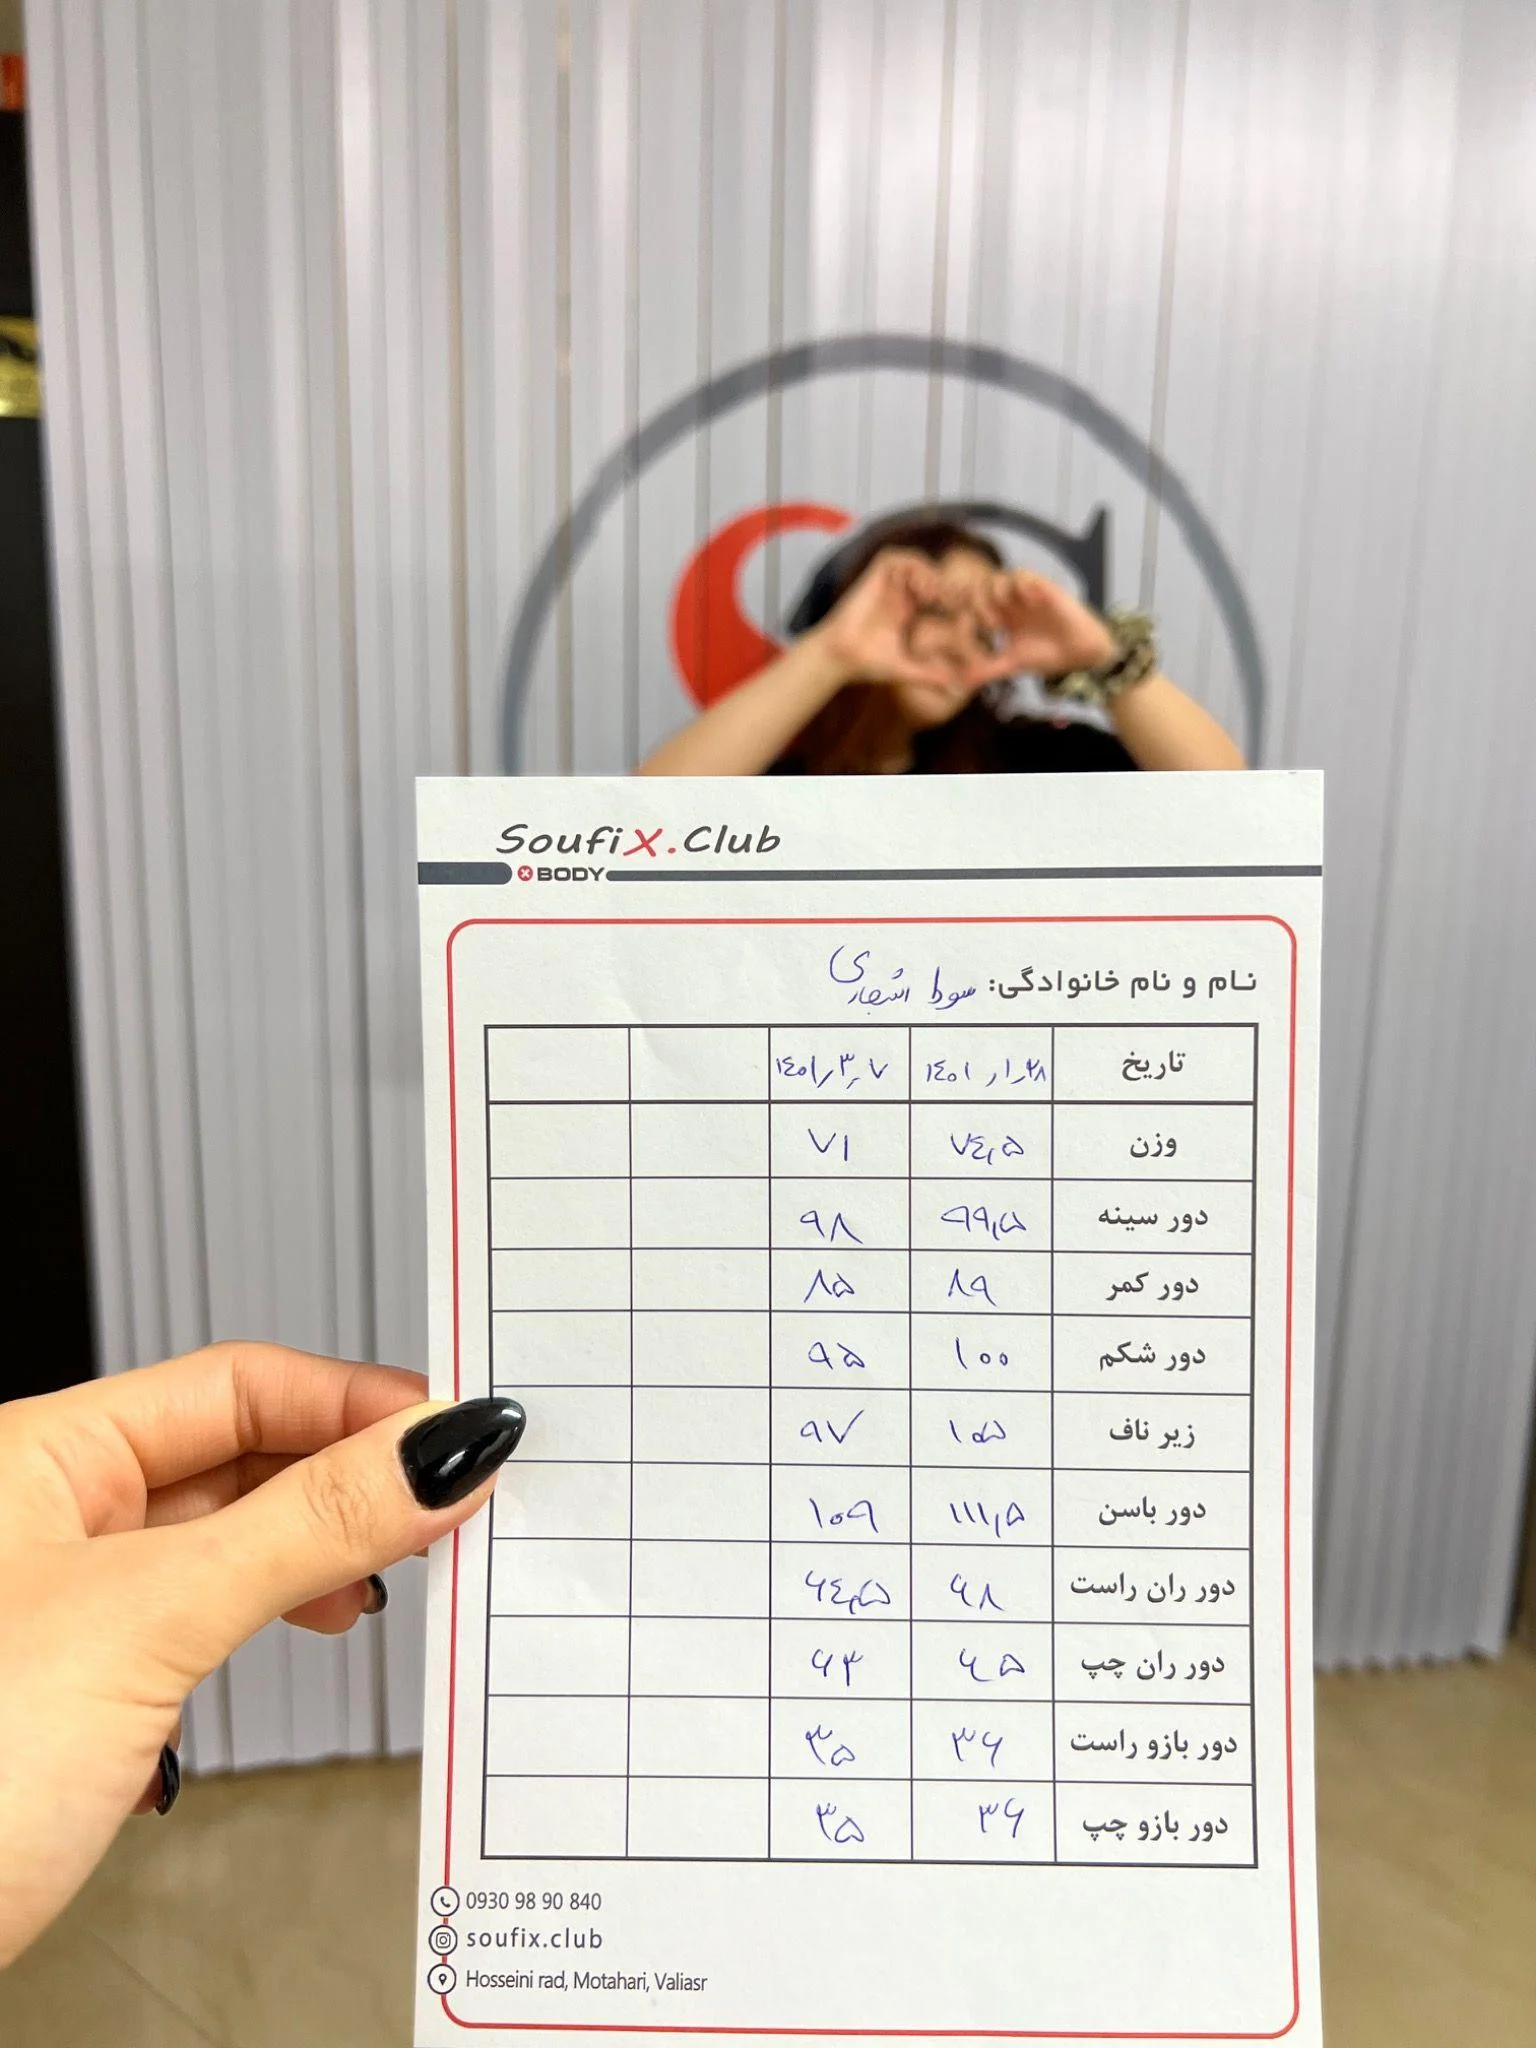 SoufiX.Club
BODY
نام و نام خانوادگی:
تاریخ ۱۴۰۱٫۱٫۲۸ ۱۴۰۱٫۳٫۷
وزن ۷۴٫۵ ۷۱
دور سینه ۹۹٫۵ ۹۸
دور کمر ۸۹ ۸۵
دور شکم ۱۰۰ ۹۵
زیر ناف ۱۰۵ ۹۷
دور باسن ۱۱۱٫۵ ۱۰۹
دور ران راست ۶۸ ۶۴٫۵
دور ران چپ ۶۵ ۶۳
دور بازو راست ۳۶ ۳۵
دور بازو چپ ۳۶ ۳۵
0930 98 90 840
soufix.club
Hosseini rad, Motahari, Valiasr